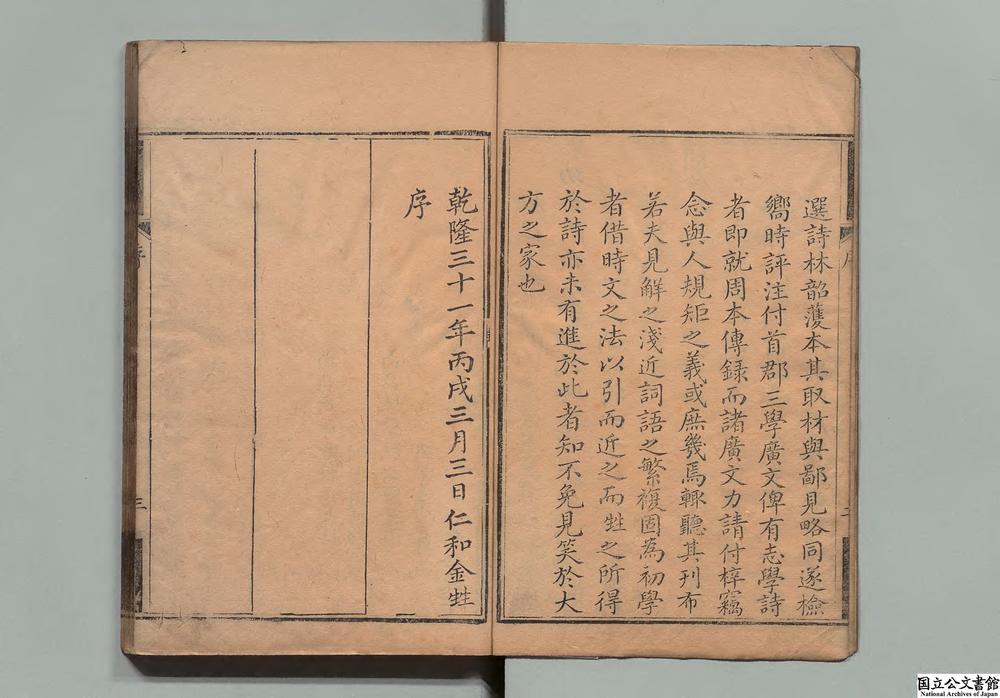 選詩林韶護本其取材與鄙見略同遂檢
嚮時評注付首郡三學廣文俾有志學詩
者即就周本傳錄而諸廣文力請付梓竊
念與人規矩之義或庶幾焉輒聽其刊布
若夫見解之淺近詞語之繁複固為初學
者借時文之法以引而近之而甡之所得
於詩亦未有進於此者知不免見笑於大
方之家也
乾隆三十一年丙戌三月三日仁和金甡
序
序
三
国立公文書館
National Archives of Japan